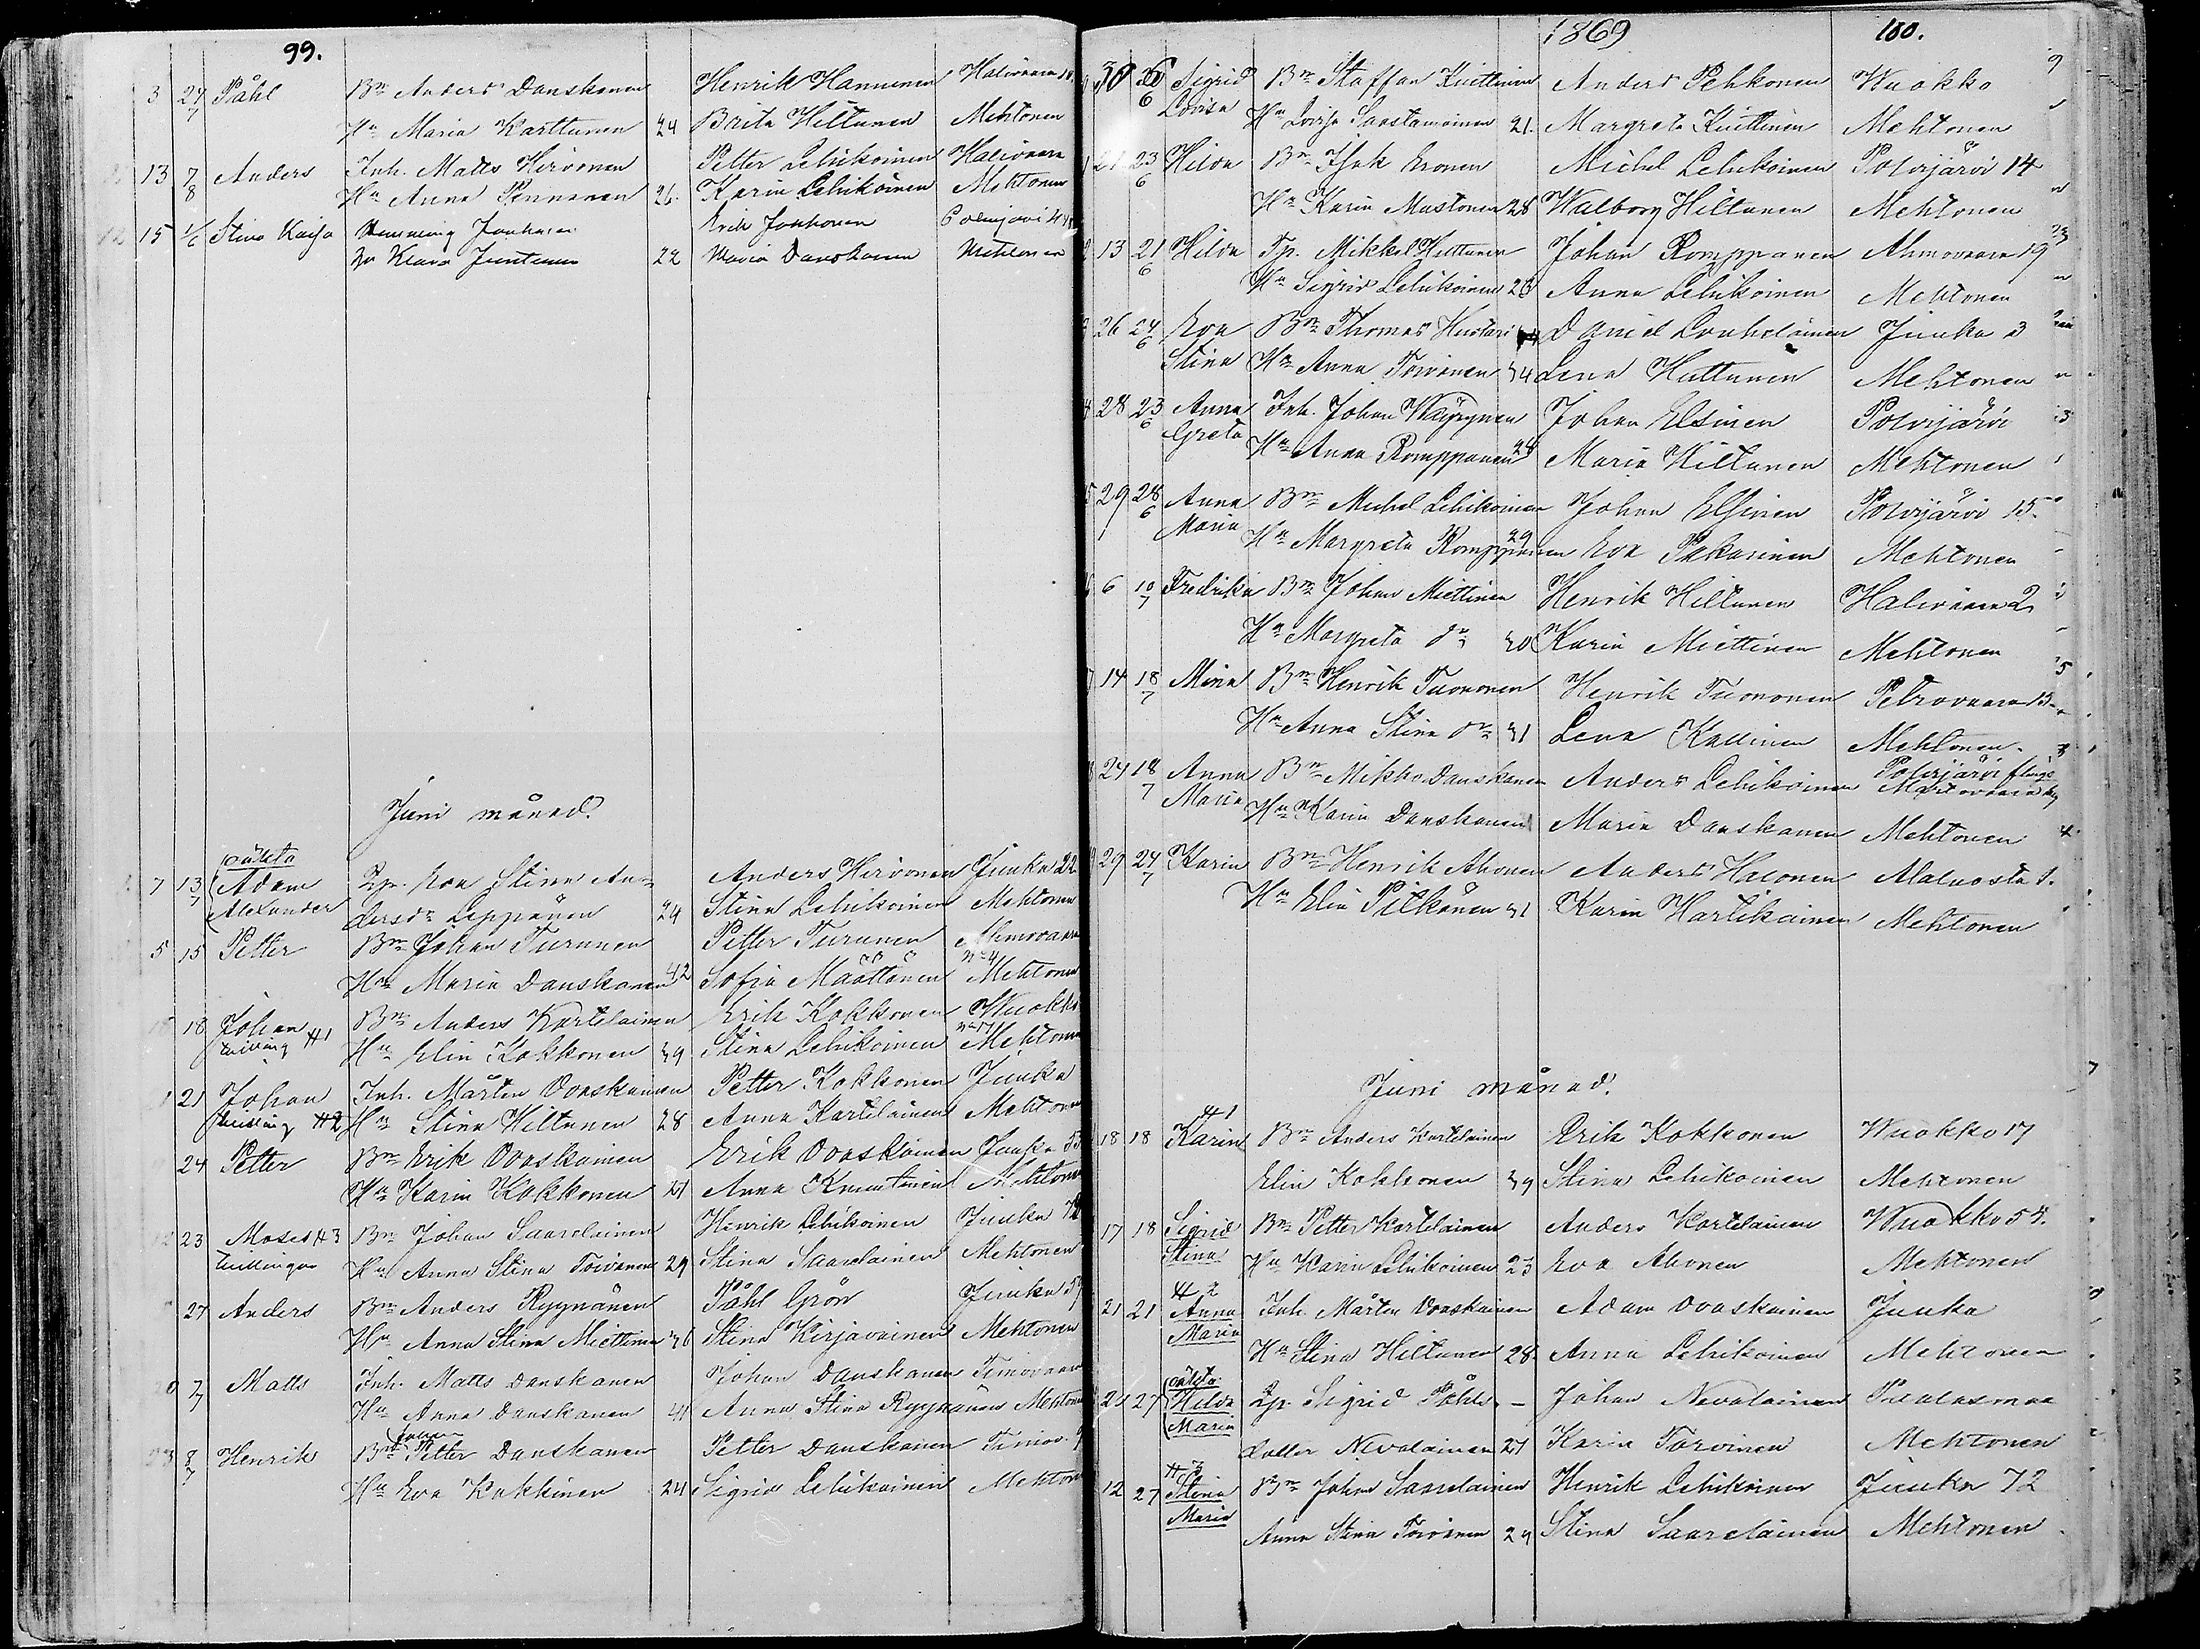 99.
3 24/7 Påhl Bn Anders Danskanen Henrik Hannunen Halivaara
Hu Maria Karttunen 24 Brita Hiltunen Mehtonen
13 7/8 Anders Inh. Matts Hirvonen Petter Lehikoinen Halivaara
Hu Anna Pennanen 26. Karin Lehikoinen Mehtonen
15 1/6 Stina Kaisa Henming Jonhunen Erik Jokhonen Polvijärvi
Hu Klara Juntunen 22 Maria Danskanen Mehtonen
Juni månad.
oäkta
7 13/7 Adam Qp. Eva Stina An- Anders Hirvonen Juuka 22
Alexander dersdr Leppänen 24 Stina Lehikoinen Mehtonen
5 15 Petter Bn Johan Turunen Petter Turunen Ahmovaara
Hu Maria Danskanen 42 Sofia Määttänen Mehtonen
18 Johan Bn Anders Kortelainen Erik Kokkonen Wuokko
tvilling #1 Hu Elin Kokkonen 39 Stina Lehikoinen Mehtonen
21 Johan Inh. Mårten Ovaskainen Petter Kokkonen Juuka
tvilling #2 Hu Stina Hiltunen 28 Anna Kortelainen Mehtonen
24 Petter Bn Erik Ovaskainen Erik Ovaskainen Juuka
Hu Karin Kokkonen 21 Anna Knuutinen Mehtonen
23 Moses #3 Bn Johan Saarelainen Henrik Lehikoinen Juuka 72
tvillingar Hu Anna Stina Toivanen 29 Stina Saarelainen Mehtonen
27 Anders Bn Anders Ryynänen Påhl Grön Juuka 57
Hu Anna Stina Miettinen 36 Stina Kirjavainen Mehtonen
7/7 Matts Inh. Matts Danskanen Johan Danskanen Timovaara
Hu Anna Danskanen 41 Anna Stina Ryynänen Mehtonen
Johan
8/7 Henrik Bn Petter Danskanen Petter Danskanen Timov.
Hu Eva Kokkinen 24 Sigrid Lehikoinen Mehtonen
1869 100.
30 26/6 Sigrid Bn Staffan Kuittinen Anders Pehkonen Wuokko
Lovisa Hu Lovisa Saastamoinen 21. Margreta Kuittinen Mehtonen
21 23/6 Hilda Bn Isak Eronen Michel Lehikoinen Polvijärvi 14
Hu Karin Mustonen 28 Walborg Hiltunen Mehtonen
13 21/6 Hilda Tp. Mikkel Hiltunen Johan Romppanen Ahmovaara 19
Hu Sigrid Lehikoinen 23 Anna Lehikoinen Mehtonen
26 24/6 Eva Bn Thomas Hustari Daniel Louhelainen Juuka 3
Stina Hu Anna Toivanen 34 Lena Huttunen Mehtonen
28 23/6 Anna Inh. Johan Wäyrynen Johan Elsinen Polvijärvi
Greta Hu Anna Romppanen 28 Maria Hiltunen Mehtonen
29 28/6 Anna Bn Michel Lehikoinen Johan Elsinen Polvijärvi 15.
Maria Hu Margreta Romppainen 29 Eva Pakarinen Mehtonen
6 10/7 Fredrika Bn Johan Miettinen Henrik Hiltunen Halivaara 2
Hu Margreta dn 30 Karin Miettinen Mehtonen
14 18/7 Mina Bn Henrik Tuononen Henrik Tuononen Petrovaara 13
Hu Anna Stina dn 31 Lena Kallinen Mehtonen.
24 18/7 Anna Bn Mikko Danskanen Anders Lehikoinen Polvijärvi
Maria Hu Karin Danskanen Maria Danskanen Mehtonen
29 24/7 Karin Bn Henrik Ahonen Anders Halonen Alaluosta 1.
Hu Elin Pitkänen 31 Karin Hartikainen Mehtonen
Juni månad.
#1
18 18 Karin Bn Anders Kortelainen Erik Kokkonen Wuokko 17
Elin Kokkonen 39 Stina Lehikoinen Mehtonen
17 18 Sigrid Bn Petter Kortelainen Anders Kortelainen Wuokko 54.
Stina Hu Karin Lehikoinen 23 Eva Ahonen Mehtonen
#2
21 21 Anna Inh. Mårten Ovaskainen Adam Ovaskainen Juuka
Maria Hu Stina Hiltunen 28. Anna Lehikoinen Mehtonen
oäkta
21 27 Hilda Qp. Sigrid Påhls- Johan Nevalainen Paalasmaa
Maria dotter Nevalainen 21 Karin Torvinen Mehtonen
#3
12 27 Stina Bn Johan Saarelainen Henrik Lehikoinen Juuka 72
Maria Anna Stina Toivanen 29 Stina Saarelainen Mehtonen